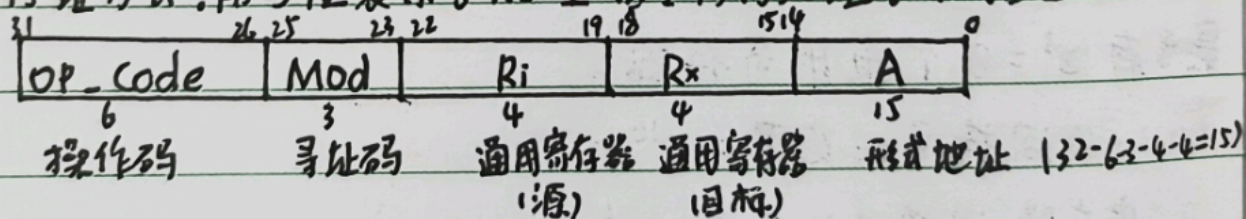 31 26 25 23 22 19 18 15 14 0
OP_Code Mod Ri Rx A
6 3 4 4 15
操作码 寻址码 通用寄存器 通用寄存器 形式地址 (32-6-3-4-4=15)
(源) (目标)